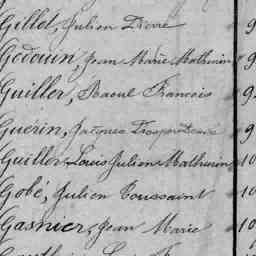 Gillot, Julien Pierre 9
Godouin, Jean Marie Mathurin 9
Guiller, Raoul François 9
Guérin, Jacques 9
Guiller, Louis Julien Mathurin 10
Gobé, Julien Toussaint 10
Gasnier, Jean Marie 10